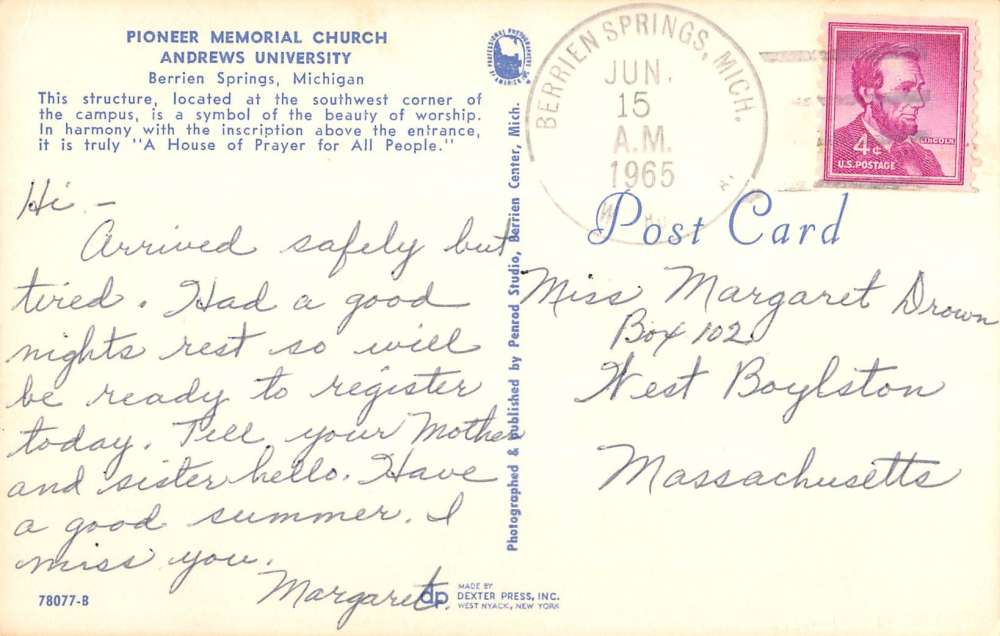 PIONEER MEMORIAL CHURCH
ANDREWS UNIVERSITY
Berrien Springs, Michigan
This structure, located at the southwest corner of
the campus, is a symbol of the beauty of worship.
In harmony with the inscription above the entrance,
it is truly "A House of Prayer for All People."
Hi -
Arrived safely but
tired. Had a good
nights rest so will
be ready to register
today. Tell your Mother
and sister hello. Have
a good summer. I
miss you.
Margaret.
78077-B
PROFESSIONAL PHOTOGRAPHERS
OF AMERICA INC
Photographed & published by Penrod Studio, Berrien Center, Mich.
dp
MADE BY
DEXTER PRESS, INC.
WEST NYACK, NEW YORK
BERRIEN SPRINGS, MICH.
JUN.
15
A.M.
1965
LINCOLN
4¢
U.S. POSTAGE
Post Card
Miss Margaret Drown
Box 102
West Boylston
Massachusetts